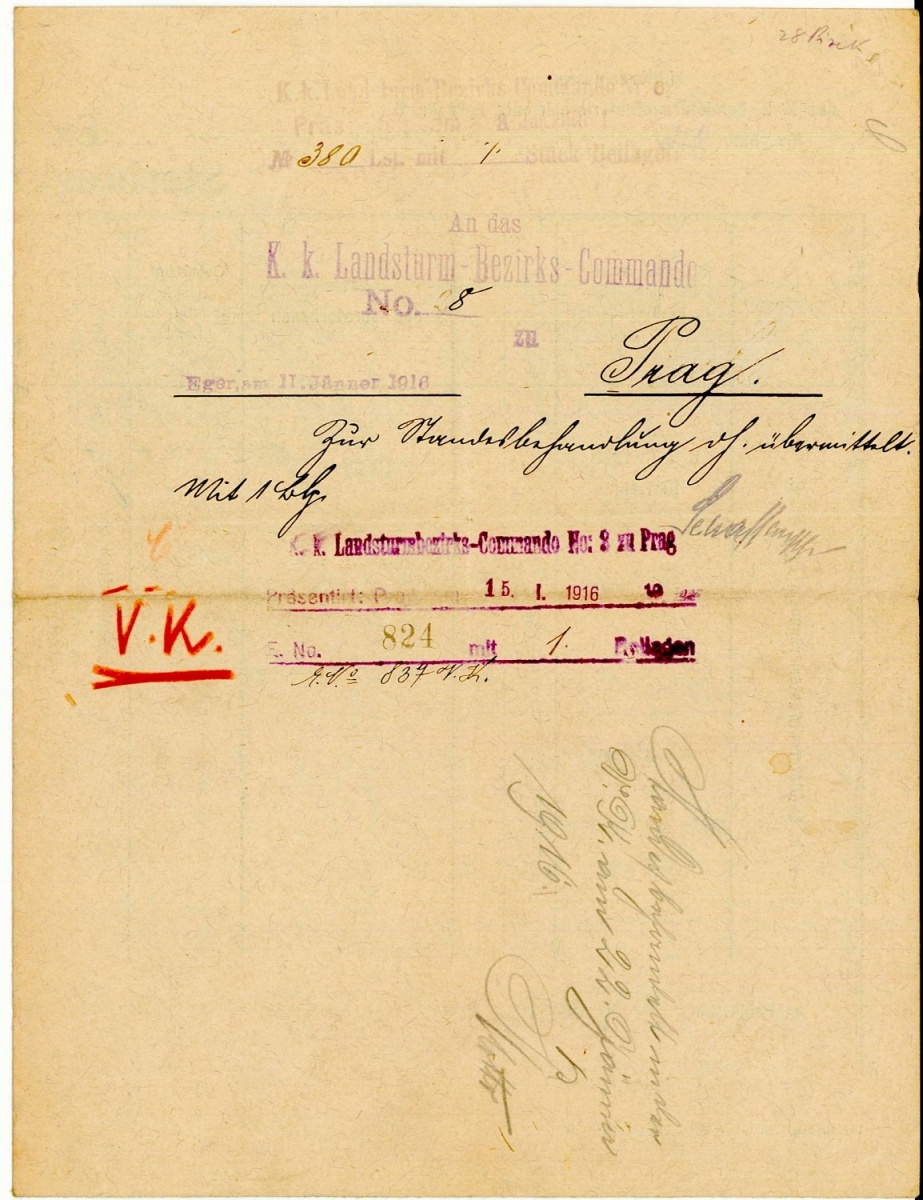 28
K. k. Bezirks-Commando Nr. 6
№ 380 Lst. mit 1 Stück Beilagen
An das
K. k. Landsturm-Bezirks-Commando
No. 28
zu
Prag.
Eger, am 11. Jänner 1916
Zur Standesbehandlung dh. übermittelt.
Mit 1 Blg.
K. k. Landsturmbezirks-Commando No: 8 zu Prag
Präsentirt: 15. I. 1916
V. K.
E. No. 824 mit 1. Beilagen
E. No 837 V. K.
Standesbehandelt in der
V. K. am 22. Jänner
1916.